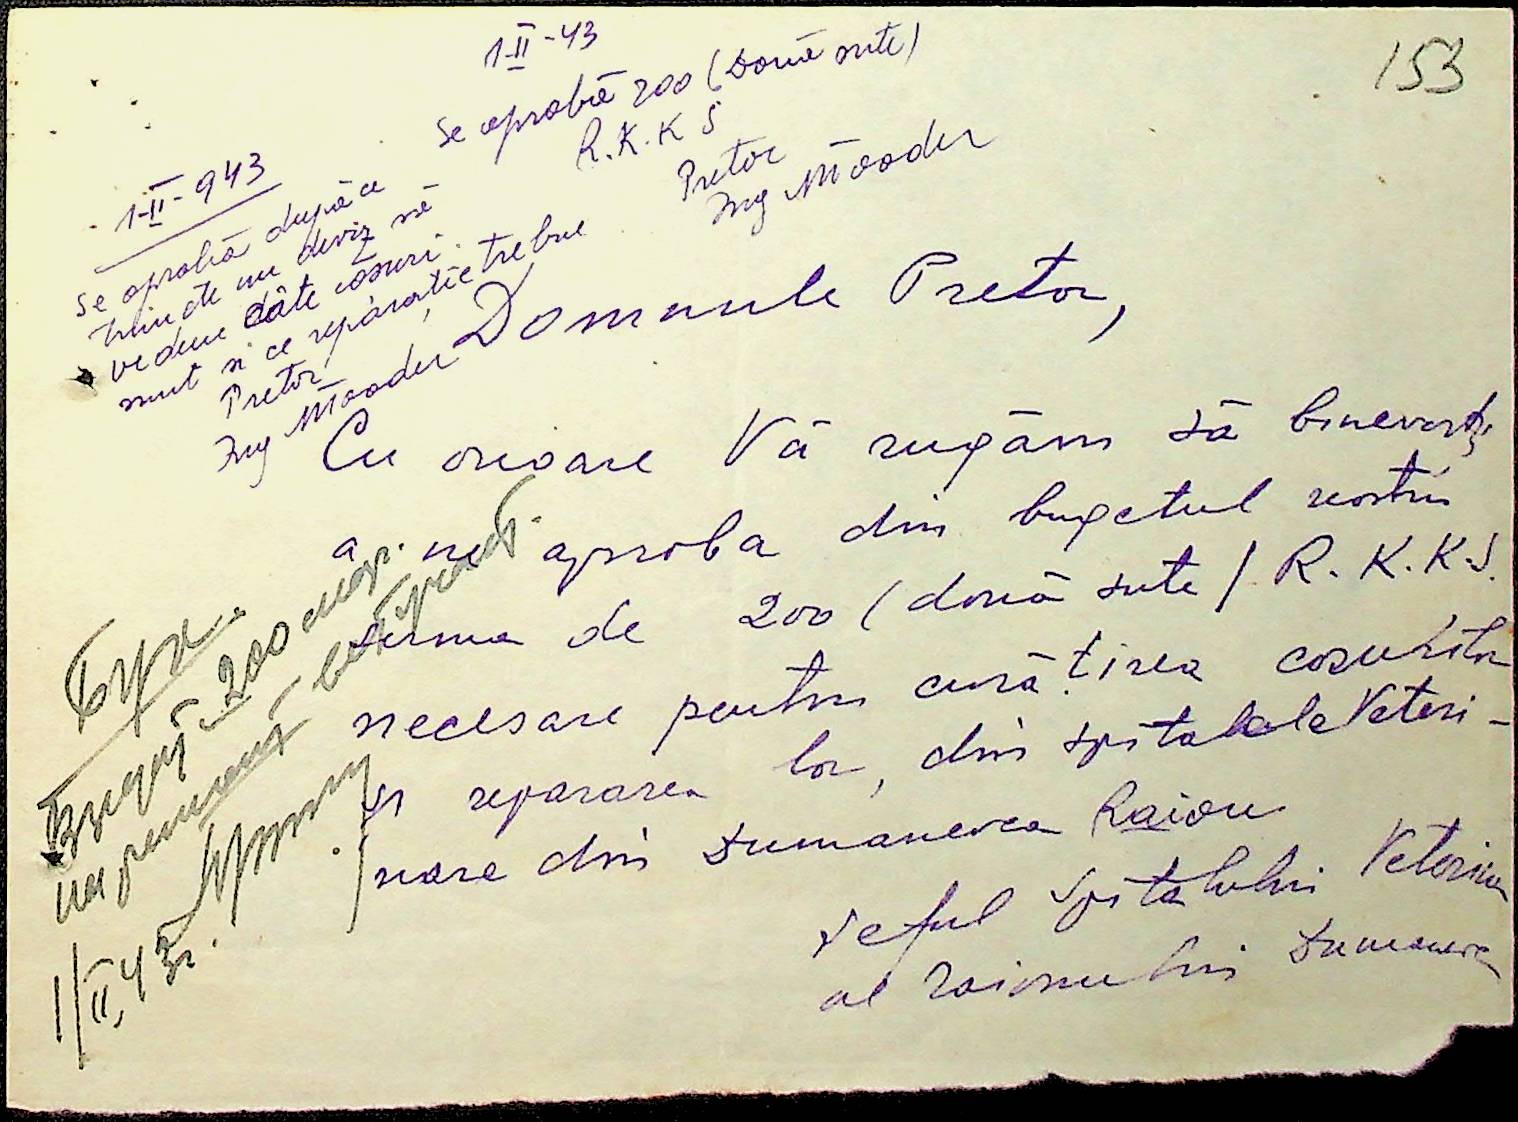 153
1-II-43
Se aprobă 200 (Două sute)
R.K.K S
Pretor
Ing Mooder
1-II-943
Se aprobă după ce
trimite un deviz să
vedem câte cosuri
sunt si ce reparatie trebue
Pretor
Ing Mooder
Domnule Pretor,
Cu onoare Vă rugăm să binevoiți
a ne aproba din bugetul nostru
suma de 200 (două sute) R.K.K.S.
necesare pentru curățirea cosurilor
și repararea lor, din spitalele Veteri-
nare din Şumanevca Raion
Şeful Spitalului Veterinar
al Raionului Şumanevca
Бух.
Выдай 200 мар.
на ремонт
1/II, 43 г.